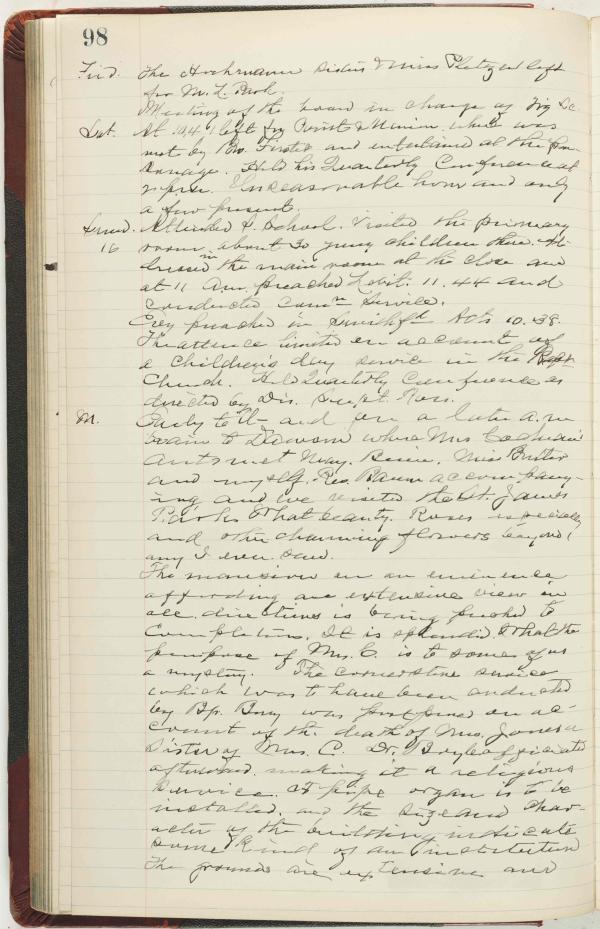 98
Frid. The Hochrmann sisters & Miss left
for Mt. L. Park.
Meeting of the board in charge of
Sat. At left for Point Marion where was
met by Bro. and entertained at the par-
sonage. Held his Quarterly Conference at
Unseasonable hour and only
a few present.
Sund. Attended S. School. Visited the primary
16 room, about 30 young children there. Ad-
dressed in the main room at the close and
at 11 a.m. preached Levit. 11.44 and
conducted comn service.
Eveg preached in Smithfd Acts 10.38.
The attence limited on account of
a children's day service in the Bapt
Church. Held Quarterly Conference as
directed by Dis. Supt. Ross.
M. Early to and on a late a.m
train to Dawson where Mrs
autos met Mary, Miss
and myself. Rev. accompany-
ing and we visited the St. James
Park & What beauty. Roses especially
and other charming flowers beyond
any I ever saw.
The mansion on an eminence
affording an extensive view in
all directions is being pushed to
completion. It is splendid. What the
purpose of Mrs. C. is to some of us
a mystery. The cornerstone service
which was to have been conducted
by Bp. was postponed on ac-
count of the death of Mrs. Jones a
sister of Mrs. C. Dr. Boyle officiated
afterward, making it a religious
service. A pipe organ is to be
installed, and the size and char-
acter of the building indicate
some kind of an institution
The grounds are extensive and